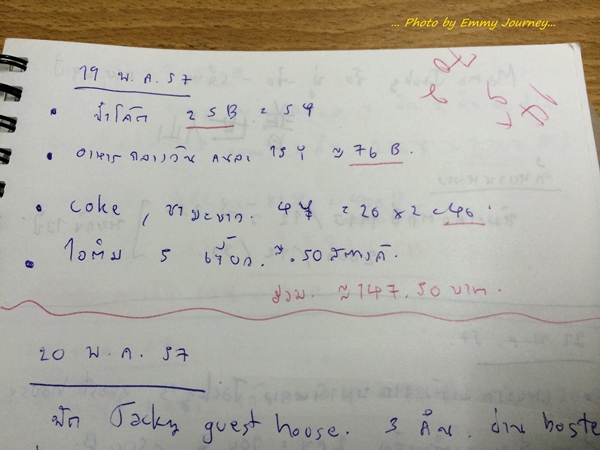 ... Photo by Emmy Journey...
19 พ.ค. 57
• น้ำโค้ก 25B = 5 ¥
• อาหารกลางวัน คนละ 15 ¥ ≈ 76 B.
• coke, ชามะนาว. 4 ¥ = 20 x 2 = 40
• ไอติม 5 เจี่ยว. ≈ .50 สตางค์.
รวม. ≈ 147.50 บาท.
20 พ.ค. 57
พัก Jacky guest house. 3 คืน. ผ่าน hoste